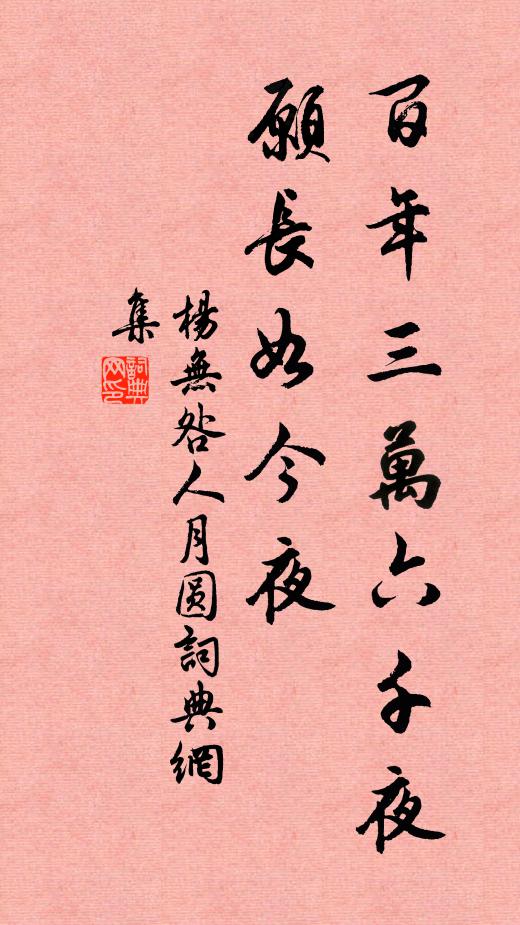 百年三萬六千夜
願長如今夜
楊無咎人月圓詞典網
集
詞典
网印